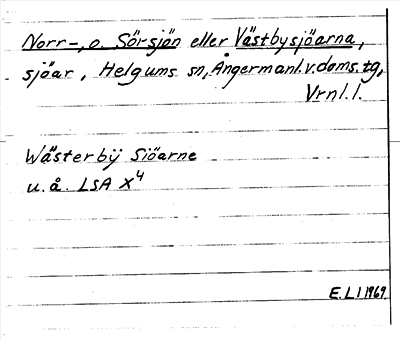 Norr-, o. Sörsjön eller Västbysjöarna,
sjöar, Helgums sn, Ångermanl. v. doms. tg,
Vrnl. l.
Wästerbÿ Siöarne
u. å. LSA X⁴
E. L I 1969.